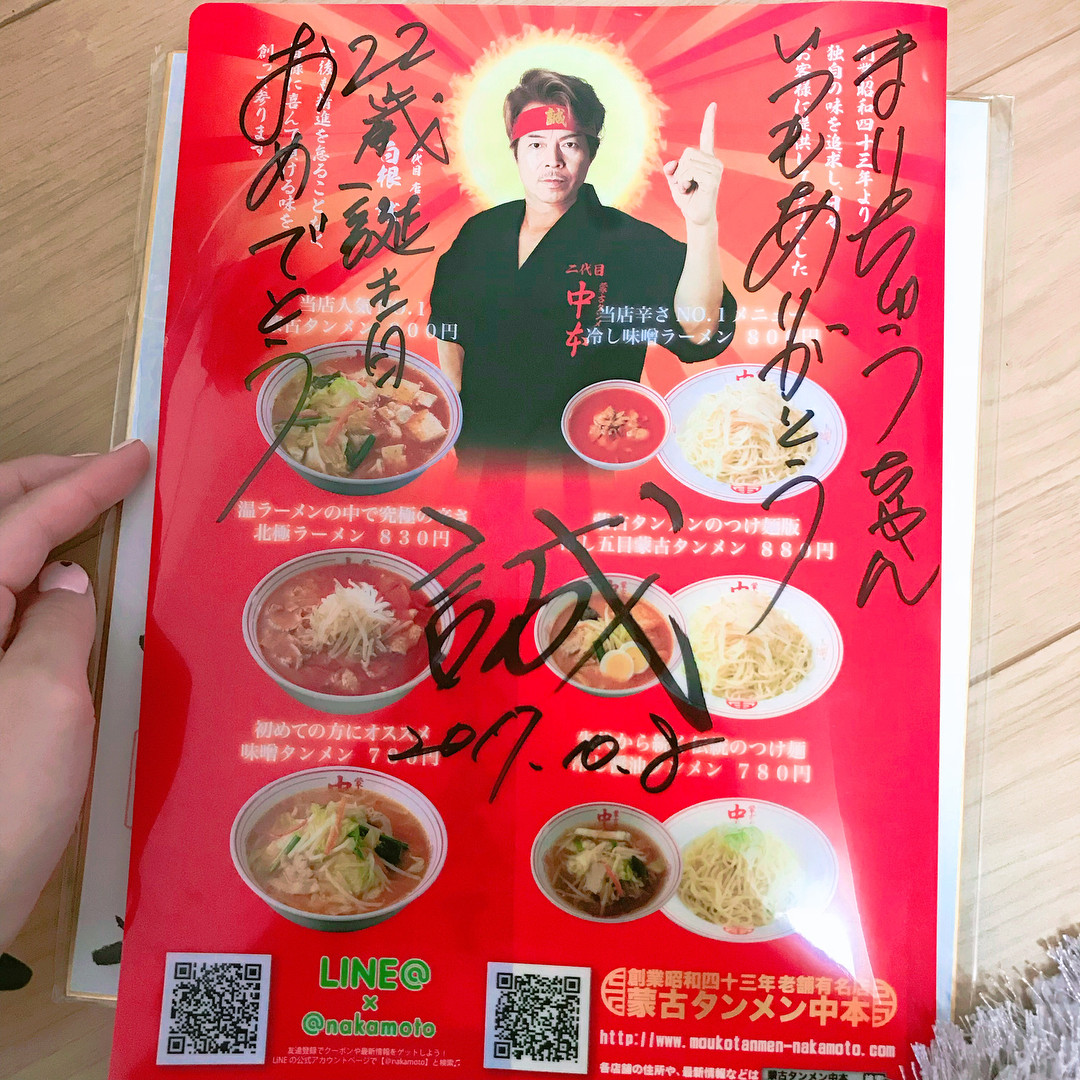 まりちゅうちゃん
いつもありがとう
22歳誕生日
おめでとう
誠
2017.10.8
創業昭和四十三年より
独自の味を追求し、
お客様に提供して
した
後も精進を怠ること
様に喜んで頂ける味を
創って参ります
代目 店
白根
誠
二代目
蒙古タンメン
中本
当店人気NO.1
古タンメン 00円
当店辛さNO.1メニュー
冷し味噌ラーメン 80円
温ラーメンの中で究極の辛さ
北極ラーメン 830円
蒙古タンメンのつけ麺版
し五目蒙古タンメン 880円
初めての方にオススメ
味噌タンメン 7 0円
から 伝統のつけ麺
メン 780円
LINE@
×
@nakamoto
友達登録でクーポンや最新情報をゲットしよう!
LINEの公式アカウントページで【@nakamoto】と検索♫
創業昭和四十三年老舗有名店
蒙古タンメン中本
http://www.moukotanmen-nakamoto.com
各店舗の住所や、最新情報などは 蒙古タンメン中本 検索